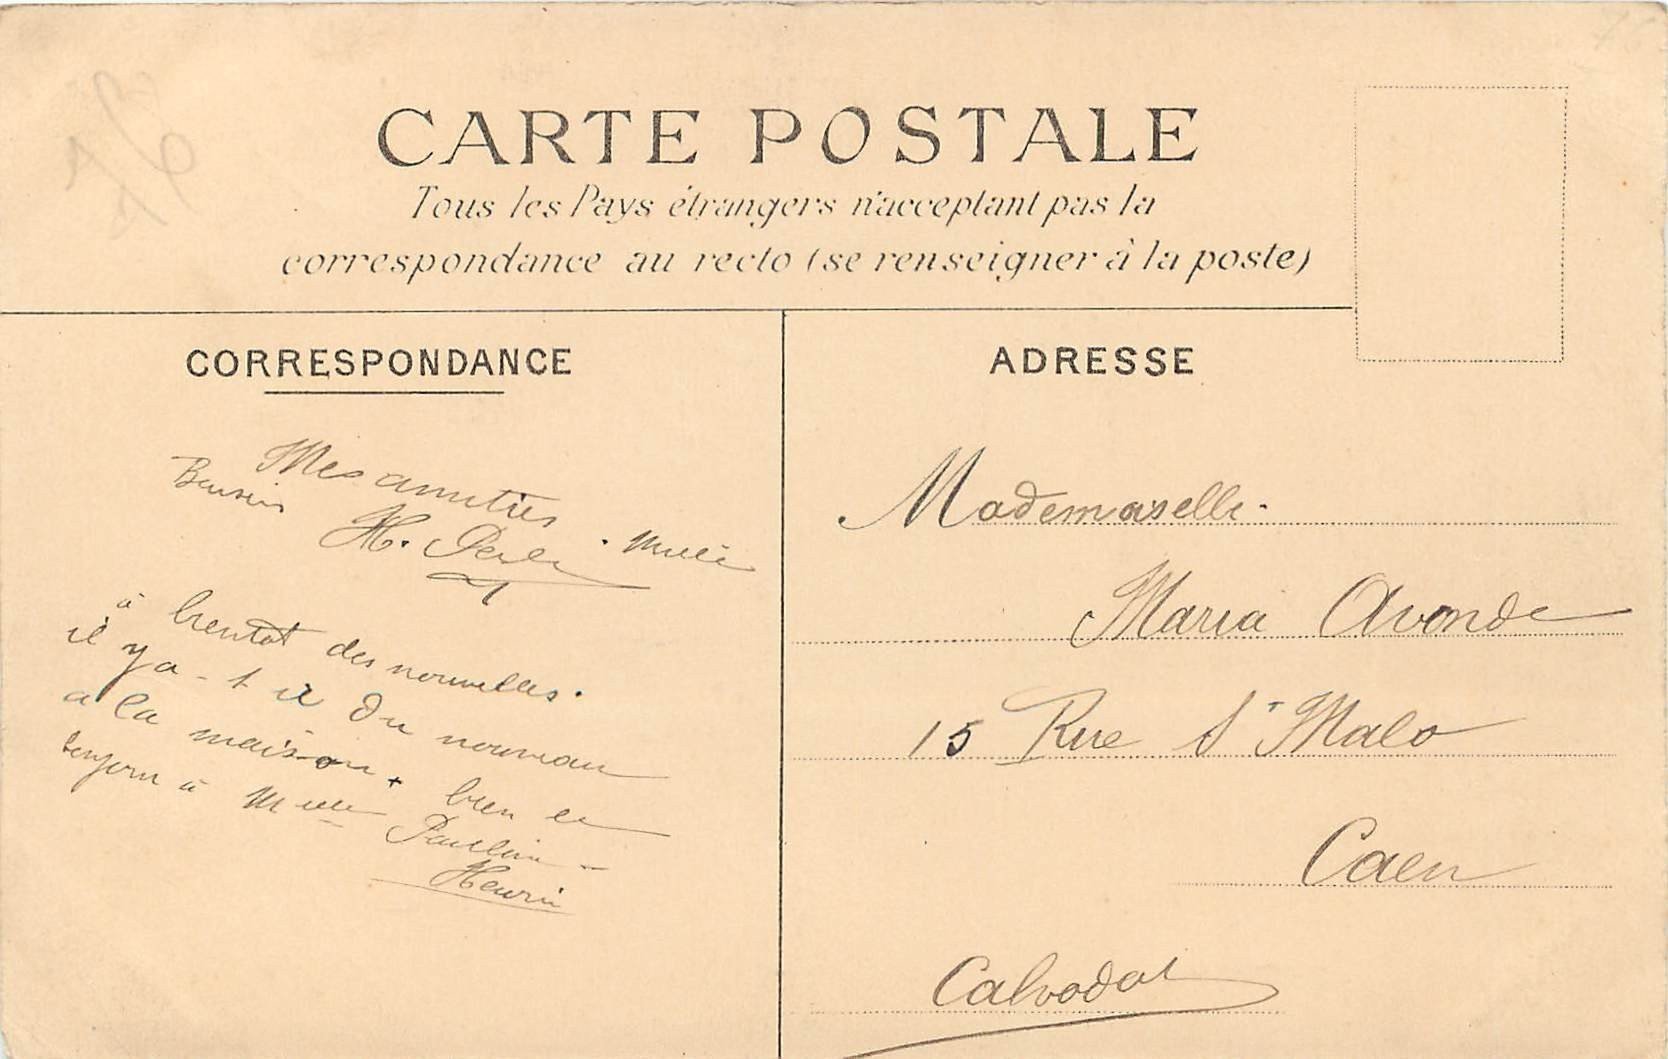 CARTE POSTALE
Tous les Pays étrangers n'acceptant pas la
correspondance au recto (se renseigner à la poste)
CORRESPONDANCE
ADRESSE
Mes amitiés
H.
à bientot des nouvelles.
il y a-t il du nouveau
a la maison + bien
à Melle
Henri
Mademoiselle.
Maria Avonde
15 Rue St Malo
Caen
Calvados